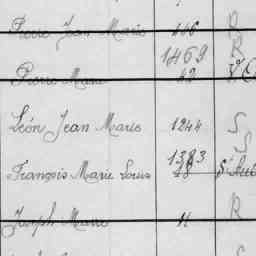 Pierre Jean Marie 446 R
1469 R
Pierre Marie 42
Léon Jean Marie 1244 S
1383 S
François Marie Louis 28
Joseph Marie 11 R